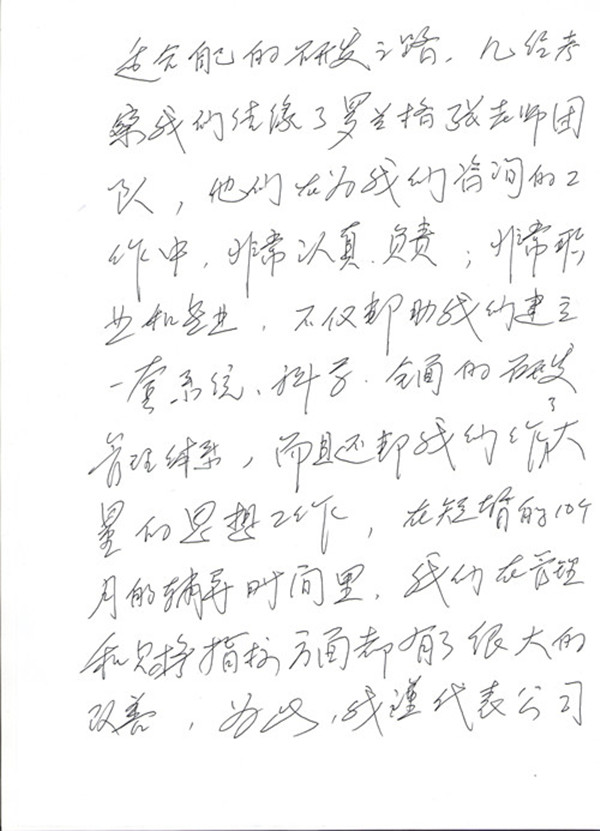 适合自己的研发之路，几经考
察我们结缘了罗兰格张老师团
队，他们在为我们咨询的工
作中，非常认真、负责；非常职
业和专业，不仅帮助我们建立
一套系统、科学、全面的研发
管理体系，而且还帮我们作了大
量的思想工作，在短暂的10个
月的辅导时间里，我们在管理
和财务指标方面都有了很大的
改善，为此，我谨代表公司